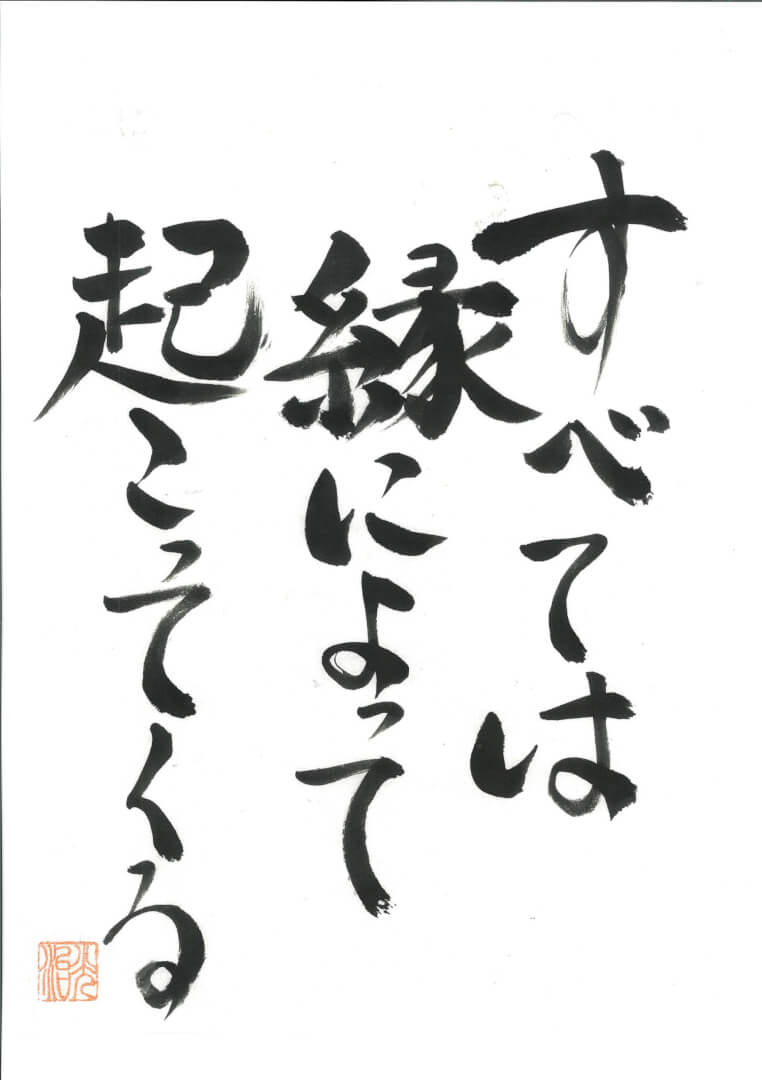 すべては
縁によって
起こってくる